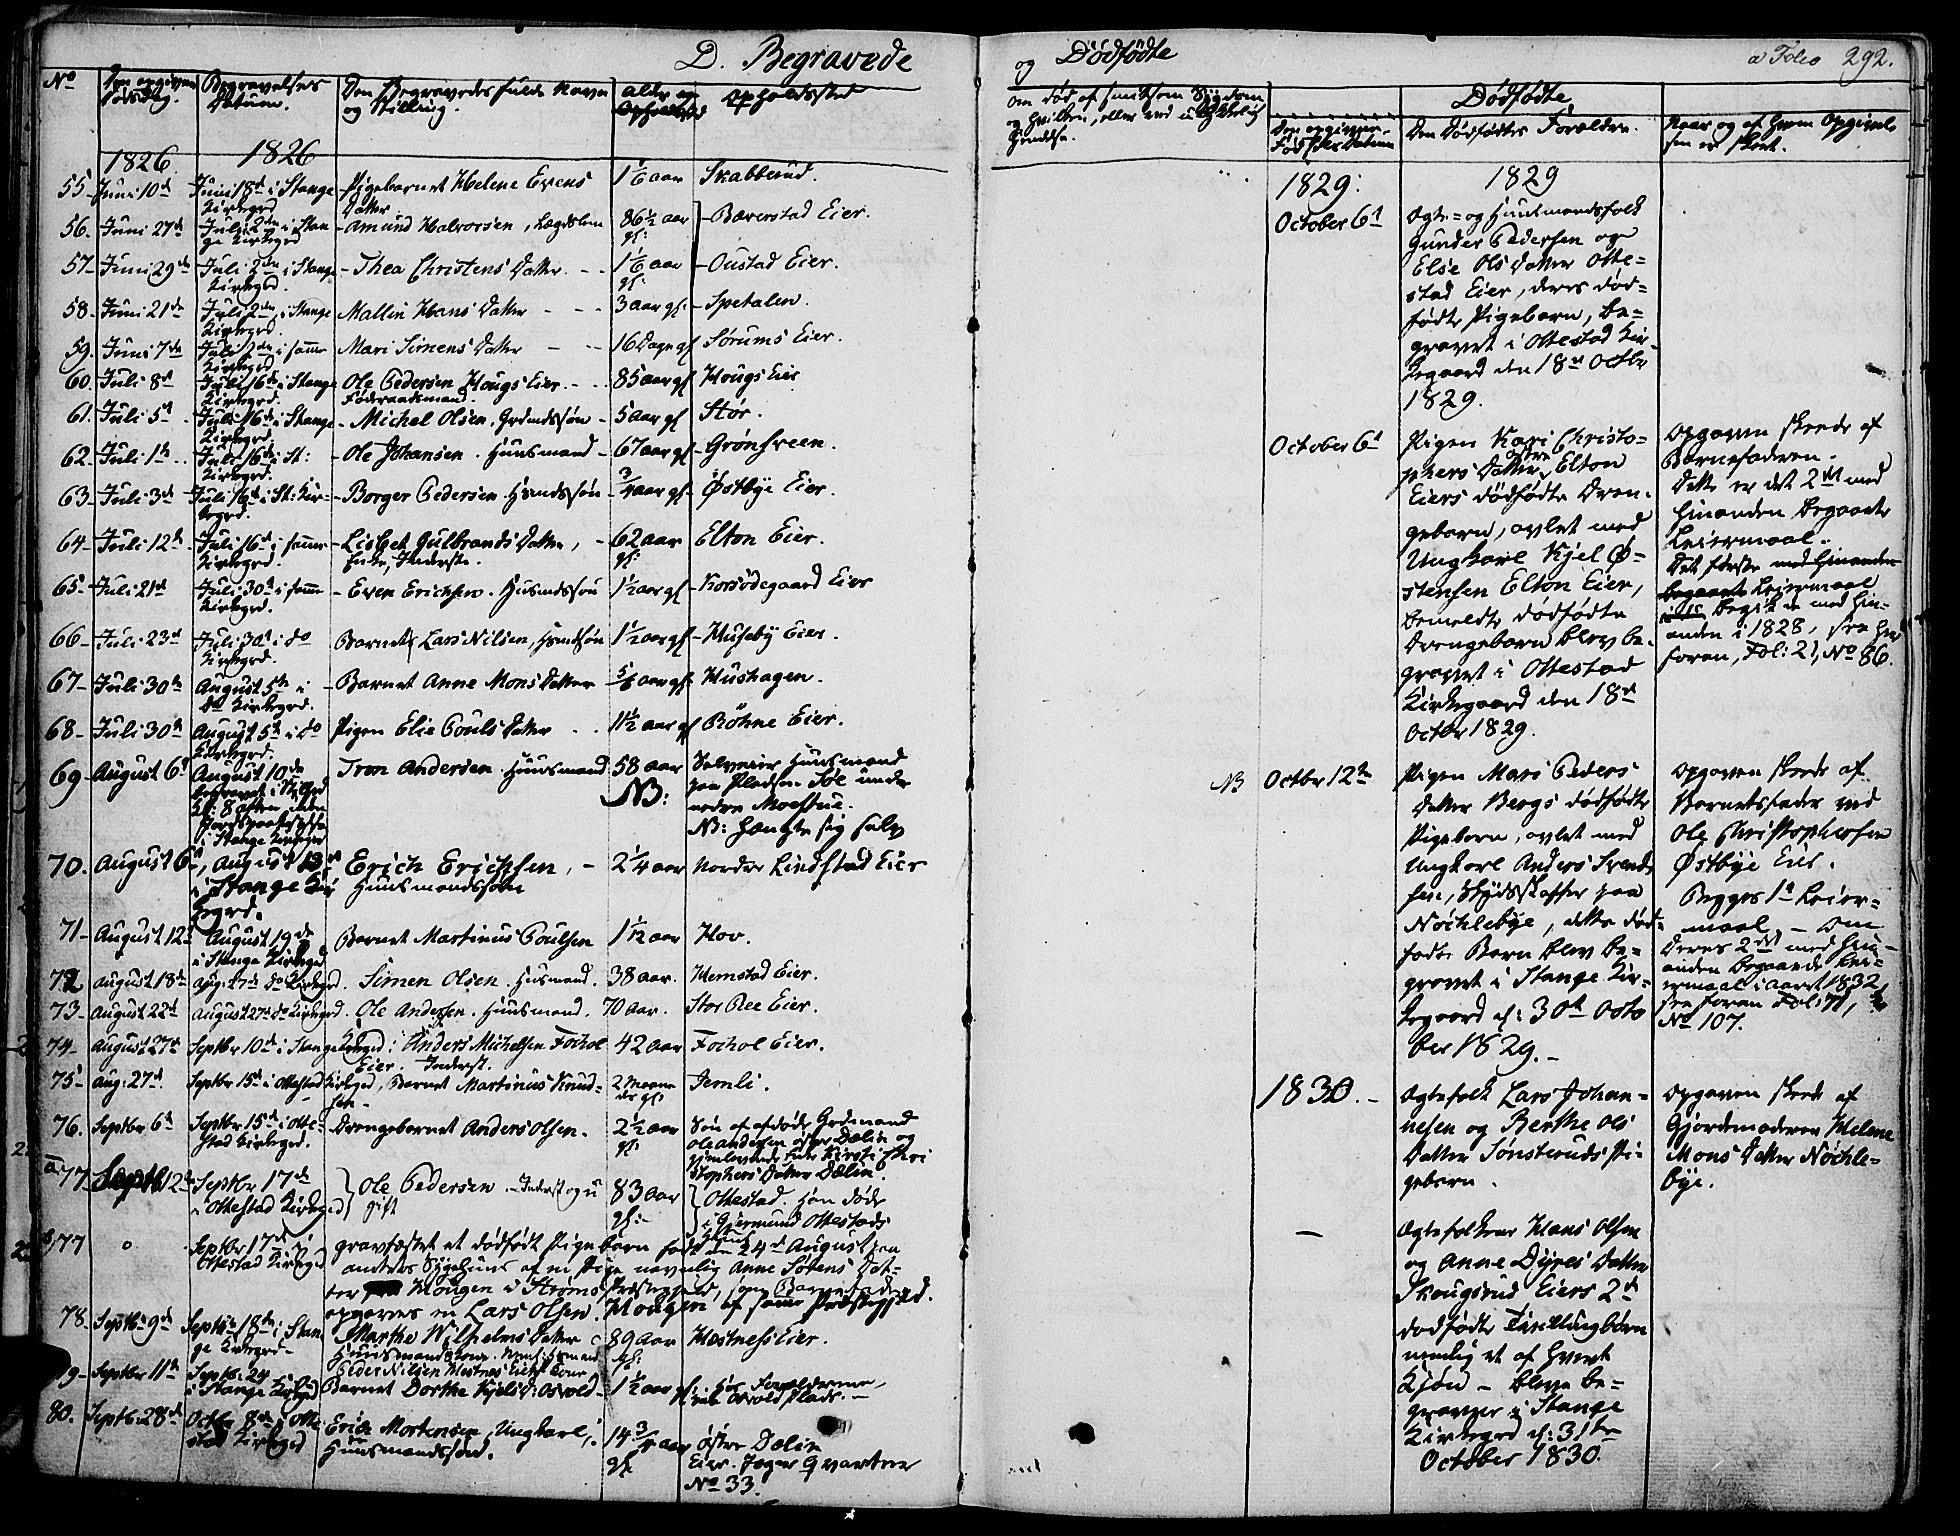 D. Begravede
No
Begravelses Datum.
Den Begravedes fulde Navn og Stilling.
Alder og
Opholdssted
1826
1826
55. Juni 10d Juni 18d i Stange Kirkegrd Pigebarnet Helene Evens Datter 1 1/6 aar Skabberud.
56. Juni 27d Juli 2den i Stange Kirkegrd - Amund Halvorsen, Lægdslem 86 1/2 aar gl: - Bæverstad Eier.
57 - Juni 29d Juli 2den i Stange Kirkegrd. - Thea Christens Datter. - - 1 1/6 aar gl: - Oustad Eier.
58. Juni 21d Juli 2den i Stange Kirkegrd. Mallin Hans Datter - - - 3 aar gl: - Spetalen.
59. Juni 7de Juli 2den i samme Kirkegrd. Mari Simens Datter - - 16 Dage gl Sørums Eier.
60. Juli 8d Juli 16d i Stange Kirkegrd. Ole Pedersen Hougs Eier. - - Føderaadsmand. 85 aar gl Hougs Eier
61. Juli 5d Juli 16d i Stange Kirkegrd. - Michel Olsen. Grdmdssøn - 5 aar gl Stør.
62. Juli 1st Juli 16d i St: Kirkegrd. - Ole Johansen. Huusmand - 67 aar gl - Grønsveen.
63 - Juli 3d Juli 16d i St. Kirkegrd. - Borger Pedersen Hsmdssøn - 3/4 aar gl - Østbye Eier.
64 - Juli 12d Juli 16d i samme Kirkegrd. - Lisbet Gulbrands Datter, - Enke, Inderste. 62 aar gl: Elton Eier.
65 - Juli 21d Juli 30d i samme Kirkegrd. - Even Erichsen. Husmdssøn 1 1/2 aar gl - Korsødegaard Eier
66 - Juli 23d Juli 30d i do Kirkegrd. Barnet Lars Nilsen, Hsmdssøn 1 1/2 aar gl - Huseby Eier.
67 - Juli 30d August 5d i do Kirkegrd. - Barnet Anne Mons Datter 5/6 aar gl - Hushagen.
68 - Juli 30d August 5d i do Kirkegrd. Pigen Elie Pouls Datter - - 11 1/2 aar gl Bøhne Eier.
69 - August 6d August 10de i Stange Kirkegrd Iron Andersen. Huusmand 58 aar NB: Selveier Huusmand paa Pladsen under nedre Moestue. NB: hængte sig selv
70. August 6d, August 13d i Stange Kirkegrd. Erich Erichsen, - Huusmandssøn 2 1/4 aar Nordre Lindstad Eier
71 - August 12d August 19de i Stange Kirkegrd Barnet Martinus Poulsen 1 1/12 aar Hov.
72 August 18de do Kirkegrd. Simen Olsen. Husmand. 38 aar. Hemstad Eier.
73 - August 22d August 27d do Kirkegrd. Ole Andersen. Huusmand. 70 aar. Stor Ree Eier.
74 - August 27d Septbr 10d i Stange Kirkegrd: Anders Michelsen Fochol Eier. Inderst. 42 aar Fochol Eier.
75 - Aug: 27d. Septbr 15d i Ottestad Kirkegrd, Barnet Martinus Knudsen - 2 Maaneder gl: Jemli.
76. Septbr 6d Septbr 15d i Ottestad Kirkegrd. Drengebarnet Anders Olsen. 2 1/2 aar gl: Søn af afdøde Grdmand Ole Andersen østre Dælin og Enke Kirsti Christophers Datter Dælin.
a 77 Septb 12d Septbr 17de i Ottestad Kirkegrd Ole Pedersen. - Inderst og ugift 83 aar gl: - Ottestad. Han døde i Gjermund Ottestads
b 77 0 Septbr 17de i Ottestad Kirkegrd gravfæstet et dødfødt Pigebarn født den 24d August paa Amtets Sygehuus af en Pige navnlig Anne Sørens Datter Hougen i Strøms Præstegjeld, som Barnefader opgaves en Lars Olsen Hougen af samme Præstegjeld.
78. Septbr 9d Septbr 18de i Stange Kirkegrd. Marthe Wilhelms Datter Huusmandskone. Peder Nilsen Hestnes Eiers Kone 89 aar gl: Hestness Eier.
79 - Septbr 11te Septb: 24 i Stange Kirkegrd Barnet Dorthe Kjels D: Osvold - 1 1/2 aar gl hos Forældrene,
80. Septb: 28de Octbr 8de i Ottestad Kirkegrd Erich Mortensen, Ungkarl, Huusmandssøn. 14 3/4 aar gl: Østre Dælin Eier. Jæger Qvarteer No 33.
og Dødfødte
a Folio 292.
Om død af smitsom Sygdom og hvilken, eller ved ulykkelig Hændelse.
Dødfødte
Den opgivne Fødselsdatum
Den Dødfødtes Forældre.
Naar og af hvem Opgivelsen er skeet.
1829.
1829
October 6d
Ægte- og Huusmandsfolk
Gunder Pedersen og
Else Ols Datter Otte=
stad Eier, deres død=
fødte Pigebarn, be=
gravet i Ottestad Kir=
kegaard den 18de Octbr
1829.
October 6d
Pigen Kari Christo=
phers Datter østre Elton
Eiers dødfødte Dren=
gebarn, avlet med
Ungkarl Kjel Ø=
stensen Elton Eier,
bemeldte dødfødte
Drengebarn blev be=
gravet i Ottestad
Kirkegaard den 18de
Octbr 1829.
Opgaven skeede af
Barnefaderen.
Dette er det 2det med
hinanden begaaede
Leiermaal.
Det første med hinanden
begaaede Leiermaal
begik de med hin=
anden i 1828, see her
foran, Fol: 21, No 86.
NB Octbr 12te
Pigen Mari Peders
Datter Bergs dødfødte
Pigebarn, avlet med
Ungkarl Anders Svend=
sen, Skydsskaffer paa
Nøchlebye, dette død=
fødte Barn blev be=
gravet i Stange Kir=
kegaard d: 30te Octo
ber 1829. -
Opgaven skeede af
Barnetsfader ved
Ole Christophersen
Østbye Eier.
Begges 1ste Leier=
maal - Om
Deres 2det med hin=
anden begaaede Lei=
ermaal i aaret 1832,
see foran Fol: 71,
No 107.
1830. -
Ægtefolk Lars Johan=
nesen og Berthe Ols
Datter Sønsteruds Pi=
gebarn.
Opgaven skeede af
Gjordemoderen Helene
Mons Datter Nøchle=
bye.
-
Ægtefolkene Hans Olsen
og Anne Dyres Datter
Skougsrud Eiers 2de
dødfødte Tvillingbørn
nemlig et af hvert
Kjøn - bleve be=
gravne i Stange
Kirkegrd d: 31te
October 1830.